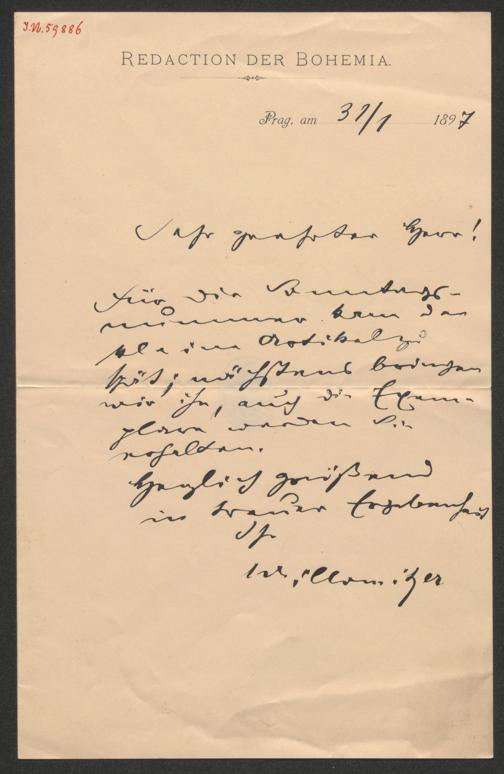 I.N. 59886
REDACTION DER BOHEMIA.
Prag, am 31/1 1897
Sehr geehrter Herr!
Für die Sonntags-
nummer kam der
kleine Artikel zu
spät; nächstens bringen
wir ihn, auch die Exem-
plare werden Sie
erhalten.
Herzlich grüßend
in treuer Ergebenheit
Ihr
Willomitzer